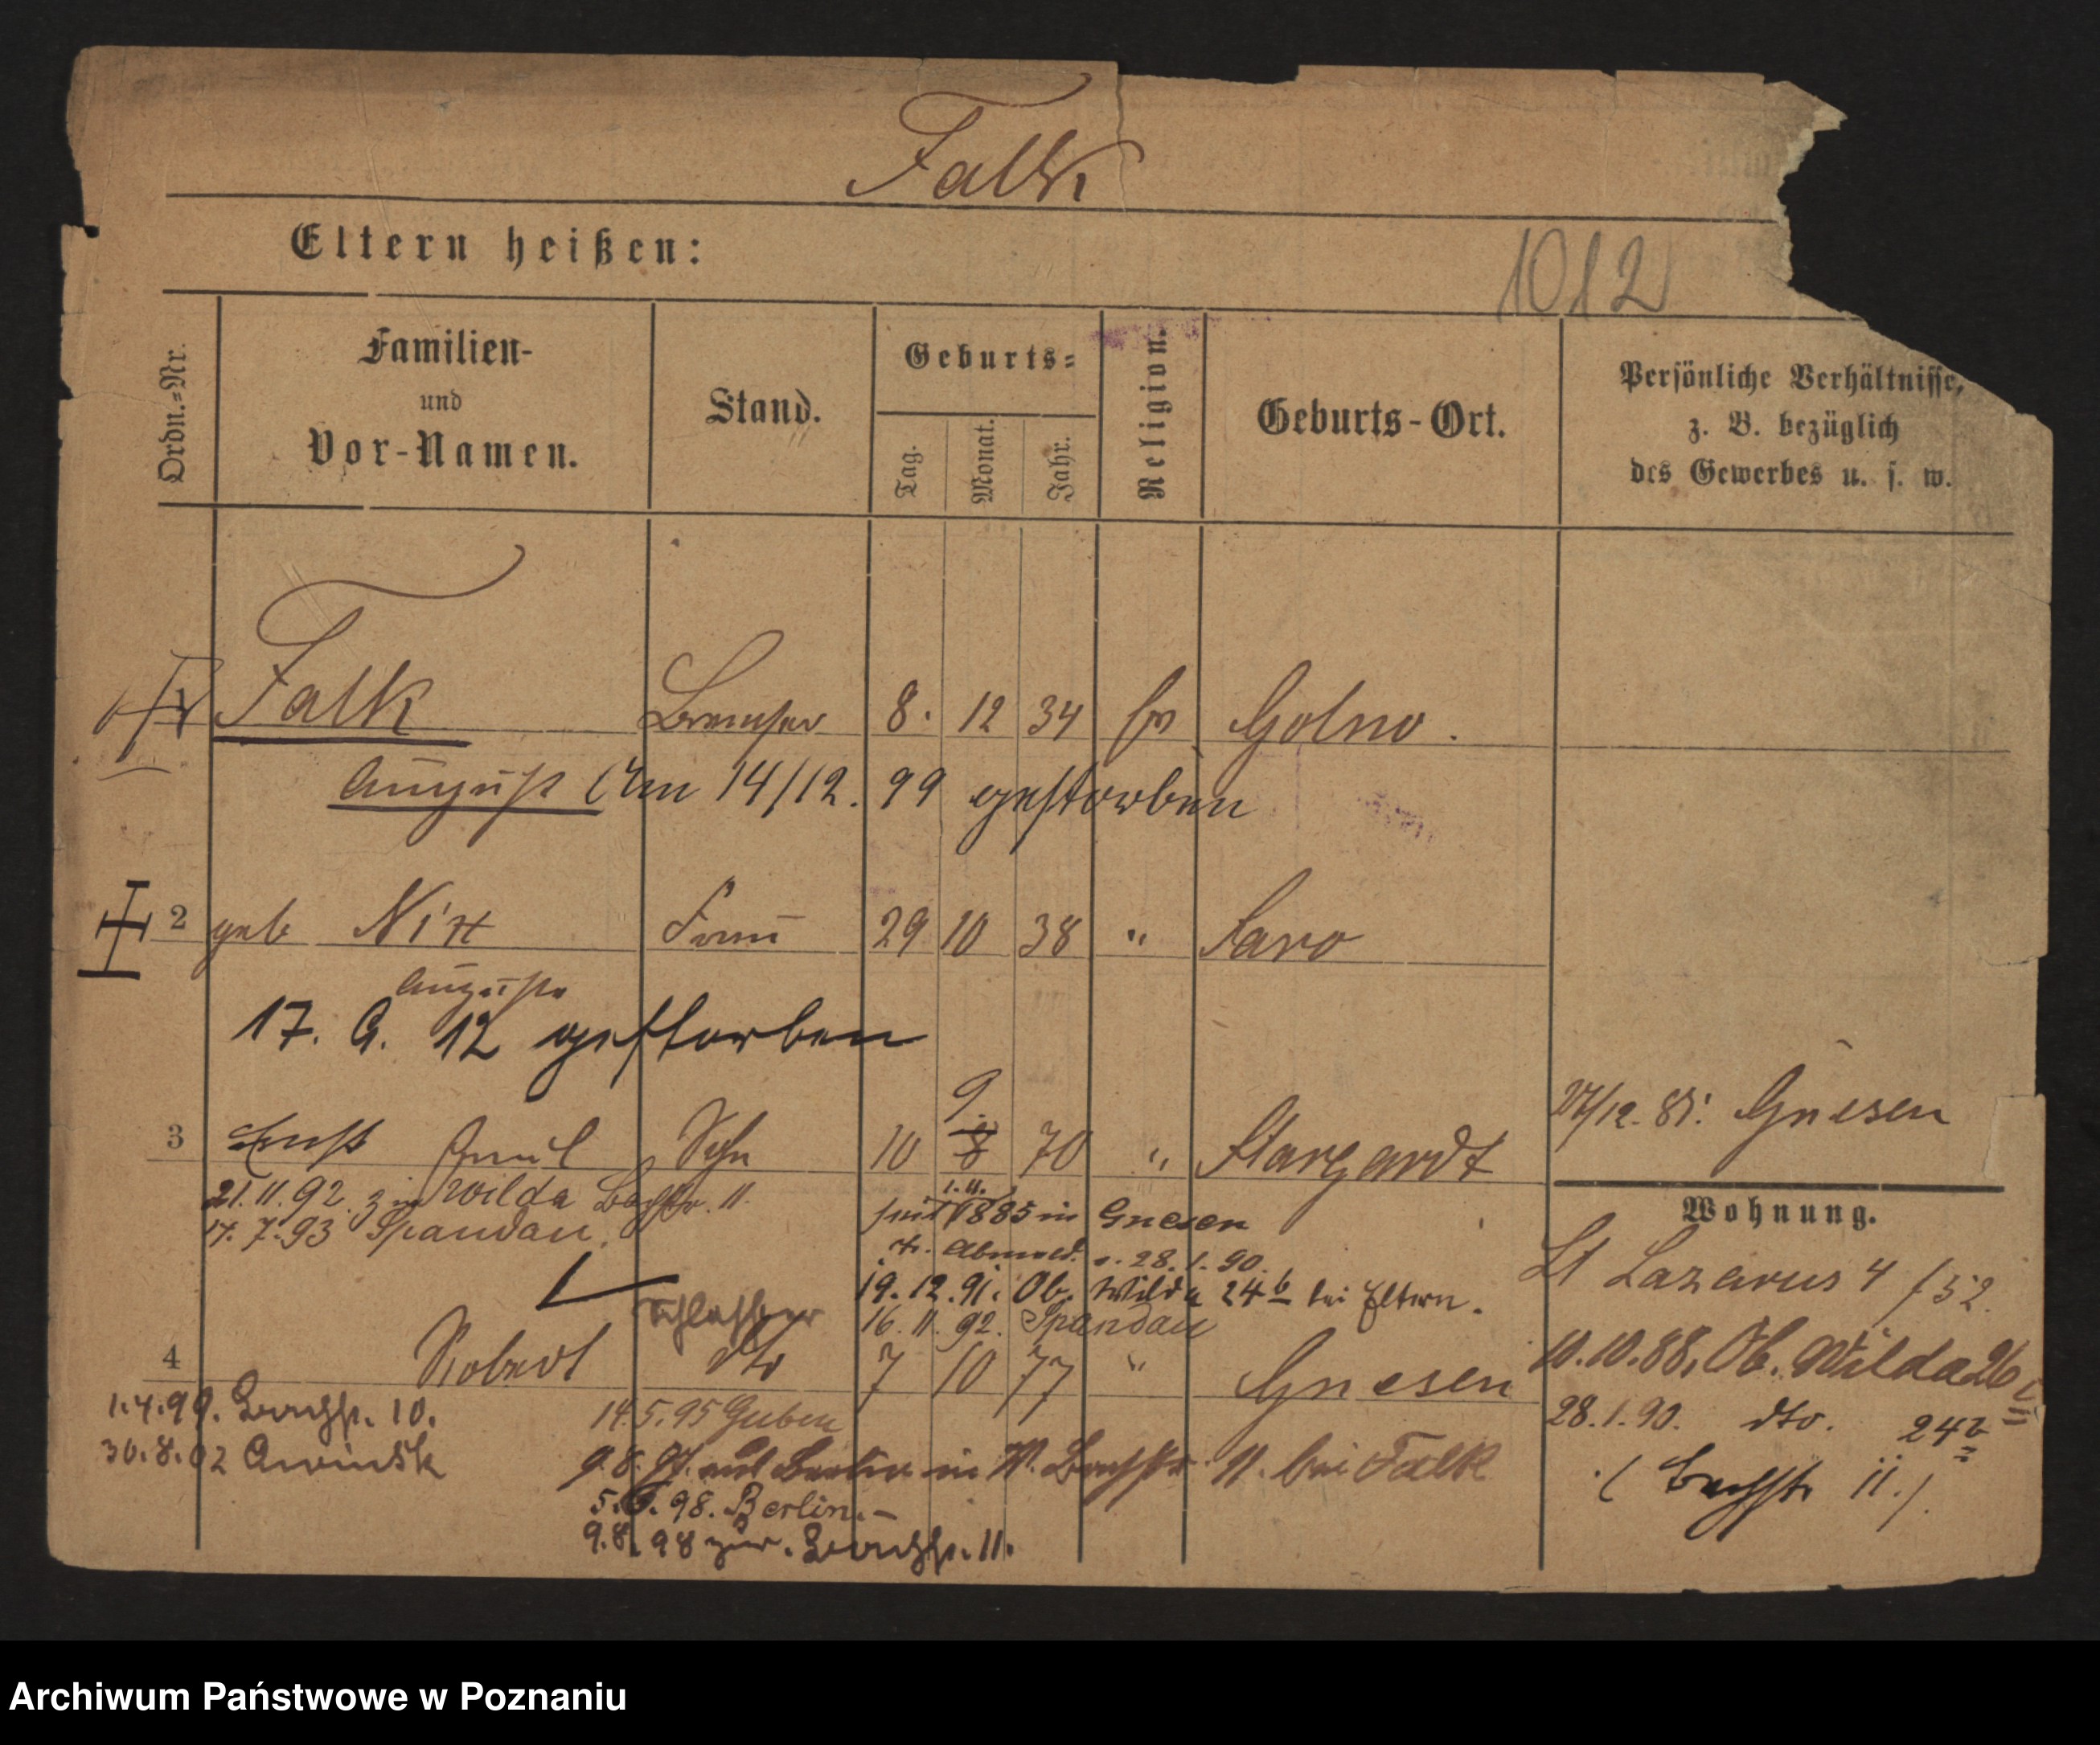 Falk
Eltern heißen:
1012
Ordn.-Nr.
Familien-
und
Vor-Namen.
Stand.
Geburts-
Tag.
Monat.
Jahr.
Religion.
Geburts-Ort.
Persönliche Verhältnisse,
z. B. bezüglich
des Gewerbes u. s. w.
1 Falk Bremser 8. 12 34 Golno.
August Am 14/12. 99 gestorben
2 geb Nitz Frau 29 10 38 " Saro
Auguste
17. 9. 12 gestorben
9.
3 Ernst Emil Sohn 10 8 70 " Stargardt
27/12. 85. Gnesen
21.11.92. z in Wilda Bachstr. 11.
1.11.
seit 1885 in Gnesen
17. 7. 93 Spandau.
Abmeld. v. 28.1.90.
Wohnung.
St Lazarus 4 / 52.
19.12.91. Ob. Wilda 24b bei Eltern.
Schlosser
16.11.92. Spandau
4 Robert dto 7 10 77 " Gnesen
10.10.88. Ob. Wilda 26
28.1.90. dto. 24b
(Bachstr 11.)
1.4.99. Bachstr. 10.
14.5.95 Guben
30.8.02
9.8.97. aus Berlin in W. Bachstr 11. bei Falk
5. 98. Berlin.-
9.8.98 zur. Bachstr. 11.
Archiwum Państwowe w Poznaniu